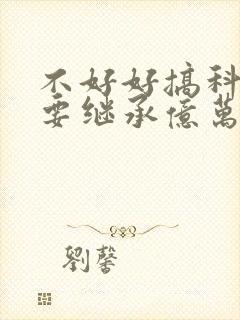 不好好搞科
要继承億萬
劉馨